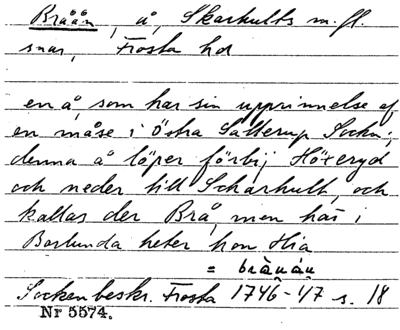 Bråån, å, Skarhults m. fl.
snar, Frosta hd
en å, som har sin upprinnelse af
en måse i Östra Sallerup Sockn;
denna å löper förbij Höxeryd
och neder till Scharhult, och
kallas der Brå, men här i
Borlunda heter hon Hia
= brånån
Sockenbeskr. Frosta 1746-47 s. 18
Nr 5574.